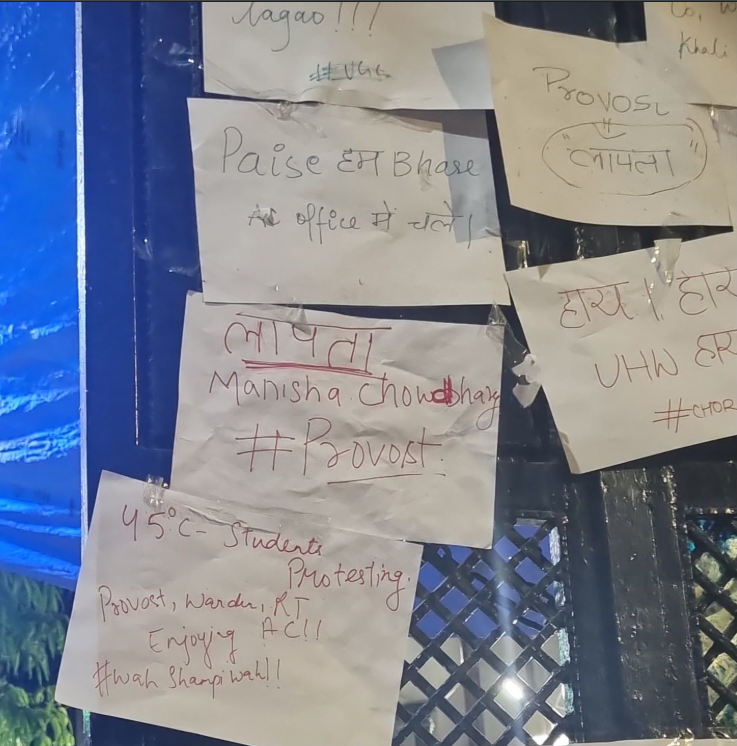 lagao!!!
Co,
Khali
Provost
"लापता"
Paise हम Bhare
AC office में चले।
हाय। हाय
UHW
#CHOR
लापता
Manisha Chowdhary
#Provost.
45°C- Students
Protesting.
Provost, Warden, RT
Enjoying AC!!
#wah Shampi wah!!